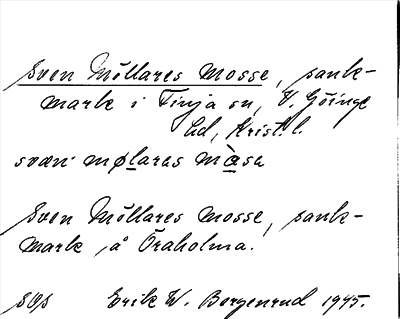 Sven Möllares mosse, sank-
mark i Finja sn, V. Göinge
hd, Krist. l.
svæn mølaras mɑ̀sa
Sven Möllares mosse, sank-
mark å Öraholma.
Erik W. Borgenrud 1945.